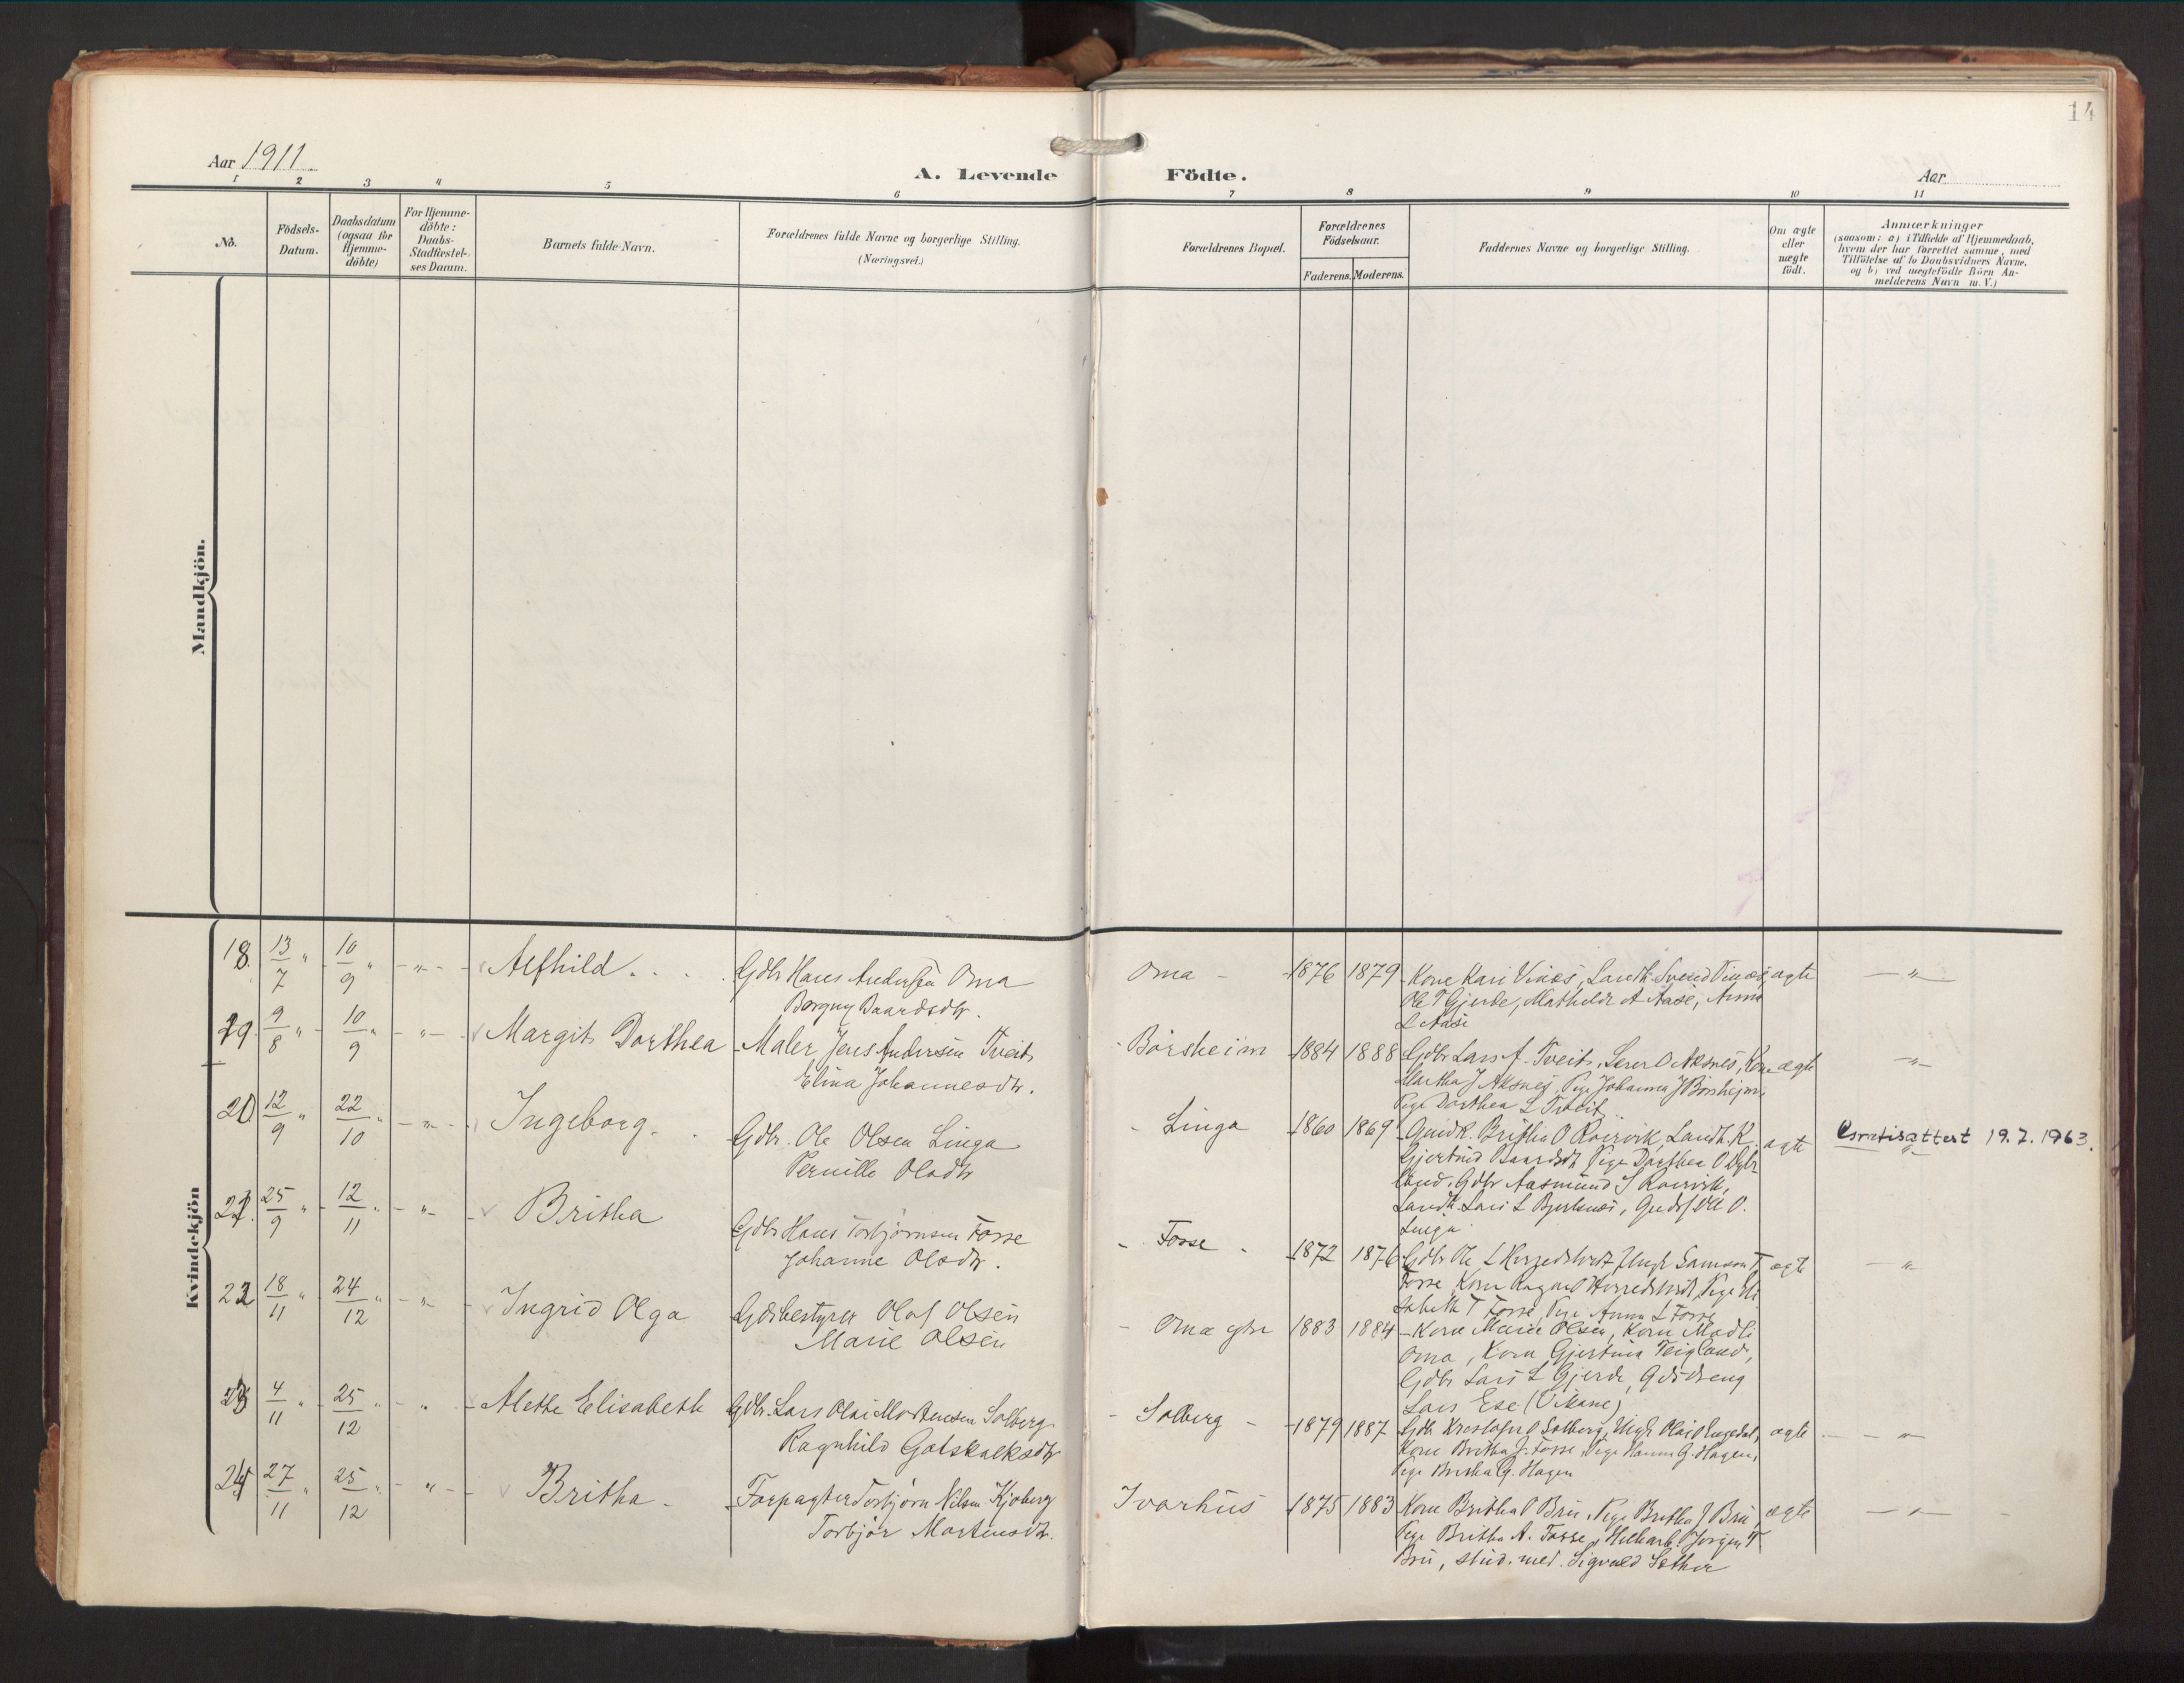 14
Aar 1911
A. Levende Födte.
Aar
1 2 3 4 5 6 7 8 9 10 11
No.
Födsels-Datum.
Daabsdatum (ogsaa for Hjemme-döbte)
For Hjemme-döbte: Daabs-Stadfæstel-ses Datum.
Barnets fulde Navn.
Forældrenes fulde Navne og borgerlige Stilling.
(Næringsvei.)
Forældrenes Bopæl.
Forældrenes Födselsaar.
Faderens. Moderens.
Faddernes Navne og borgerlige Stilling.
Om ægte eller uægte födt.
Anmærkninger
(saasom: a) i Tilfælde af Hjemmedaab,
hvem der har forrettet samme, med
Tilföielse af to Daabsvidners Navne.
og b) ved uægtefödte Börn An-
melderens Navn m. V.)
Mandkjön.
Kvindekjön
18. 13/7 " 10/9 " - " - Alfhild. Gdbr Hans Andersen Oma Oma - 1876 1879 Kone Kari Vinæs, Landh. Svend Vinæs, ægte - " -
Borgny Baardsdtr. Ole T Gjerde, Mathilde A Aase, Anna
L Aase
19. 9/8 " 10/9 " - " - Margit Dorthea Maler Jens Andersen Tveit Börsheim 1884 1888 Gdbr Lars A. Tveit, Lever O Aksnes, Kone ægte - " -
Elina Johannesdtr. Martha J Aksnes, Pige Johanna J Börsheim,
Pige Dorthea L Tveit
20 12/9 " 22/10 " - " - Ingeborg. Gdbr. Ole Olsen Linga - Linga 1860 1869 Gmdk. Britha O Røirvik, Landh. K. ægte Gratisattest 19.2.1963.
Pernille Olsdtr Gjertrud Baardsdt Pige Dorthea O
Gdbr Aasmund S Røirvik,
Landh. Lars L Bjerknes, Gmds. Ole O.
Linga
21. 25/9 " 12/11 " - " - Britha Gdbr Hans Torbjørnsen Fosse - Fosse - 1872 1876 Gdbr Ole L Ungk Samson T ægte - " -
Johanne Olsdtr. Fosse, Kone Pige
T Fosse, Pige Anna L Fosse
22 18/11 " 24/12 " - " - Ingrid Olga Gdsbestyrer Olaf Olsen - Oma 1883 1884 - Kone Marie Olsen, Kone Madli
Marie Olsen Oma, Kone Gjertina Teigland,
Gdbr Lars L Gjerde, Gdsdreng
Lars Ese (Vikane)
23 4/11 " 25/12 " - " - Alette Elisabeth Gdbr. Lars Olai Mortensen Solberg - Solberg - 1879 1887 Gdbr Kristofer O Solberg, Ungk Olai ægte - " -
Ragnhild Gotskalksdtr Kone Britha J. Fosse, Pige Hanna G. Hagen,
Pige Britha G. Hagen
24 27/11 " 25/12 " - " - Britha - Forpagter Torbjørn Nilsen Kjoberg Ivarhus 1875 1883 Kone Britha O Bru, Pige Britha J Bru, ægte - " -
Torbjør Mortensdtr. Pige Britha A. Fosse, Jørgen T
Bru, stud. med. Sigvald Sethre